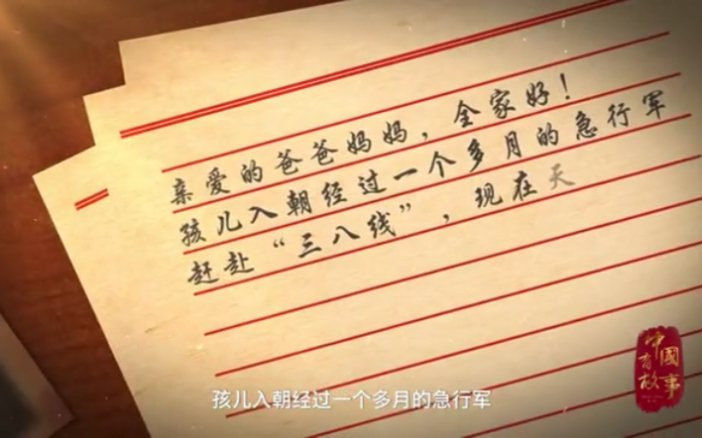 亲爱的爸爸妈妈，全家好！
孩儿入朝经过一个多月的急行军
赶赴“三八线”，现在天
中國
有故事
孩儿入朝经过一个多月的急行军